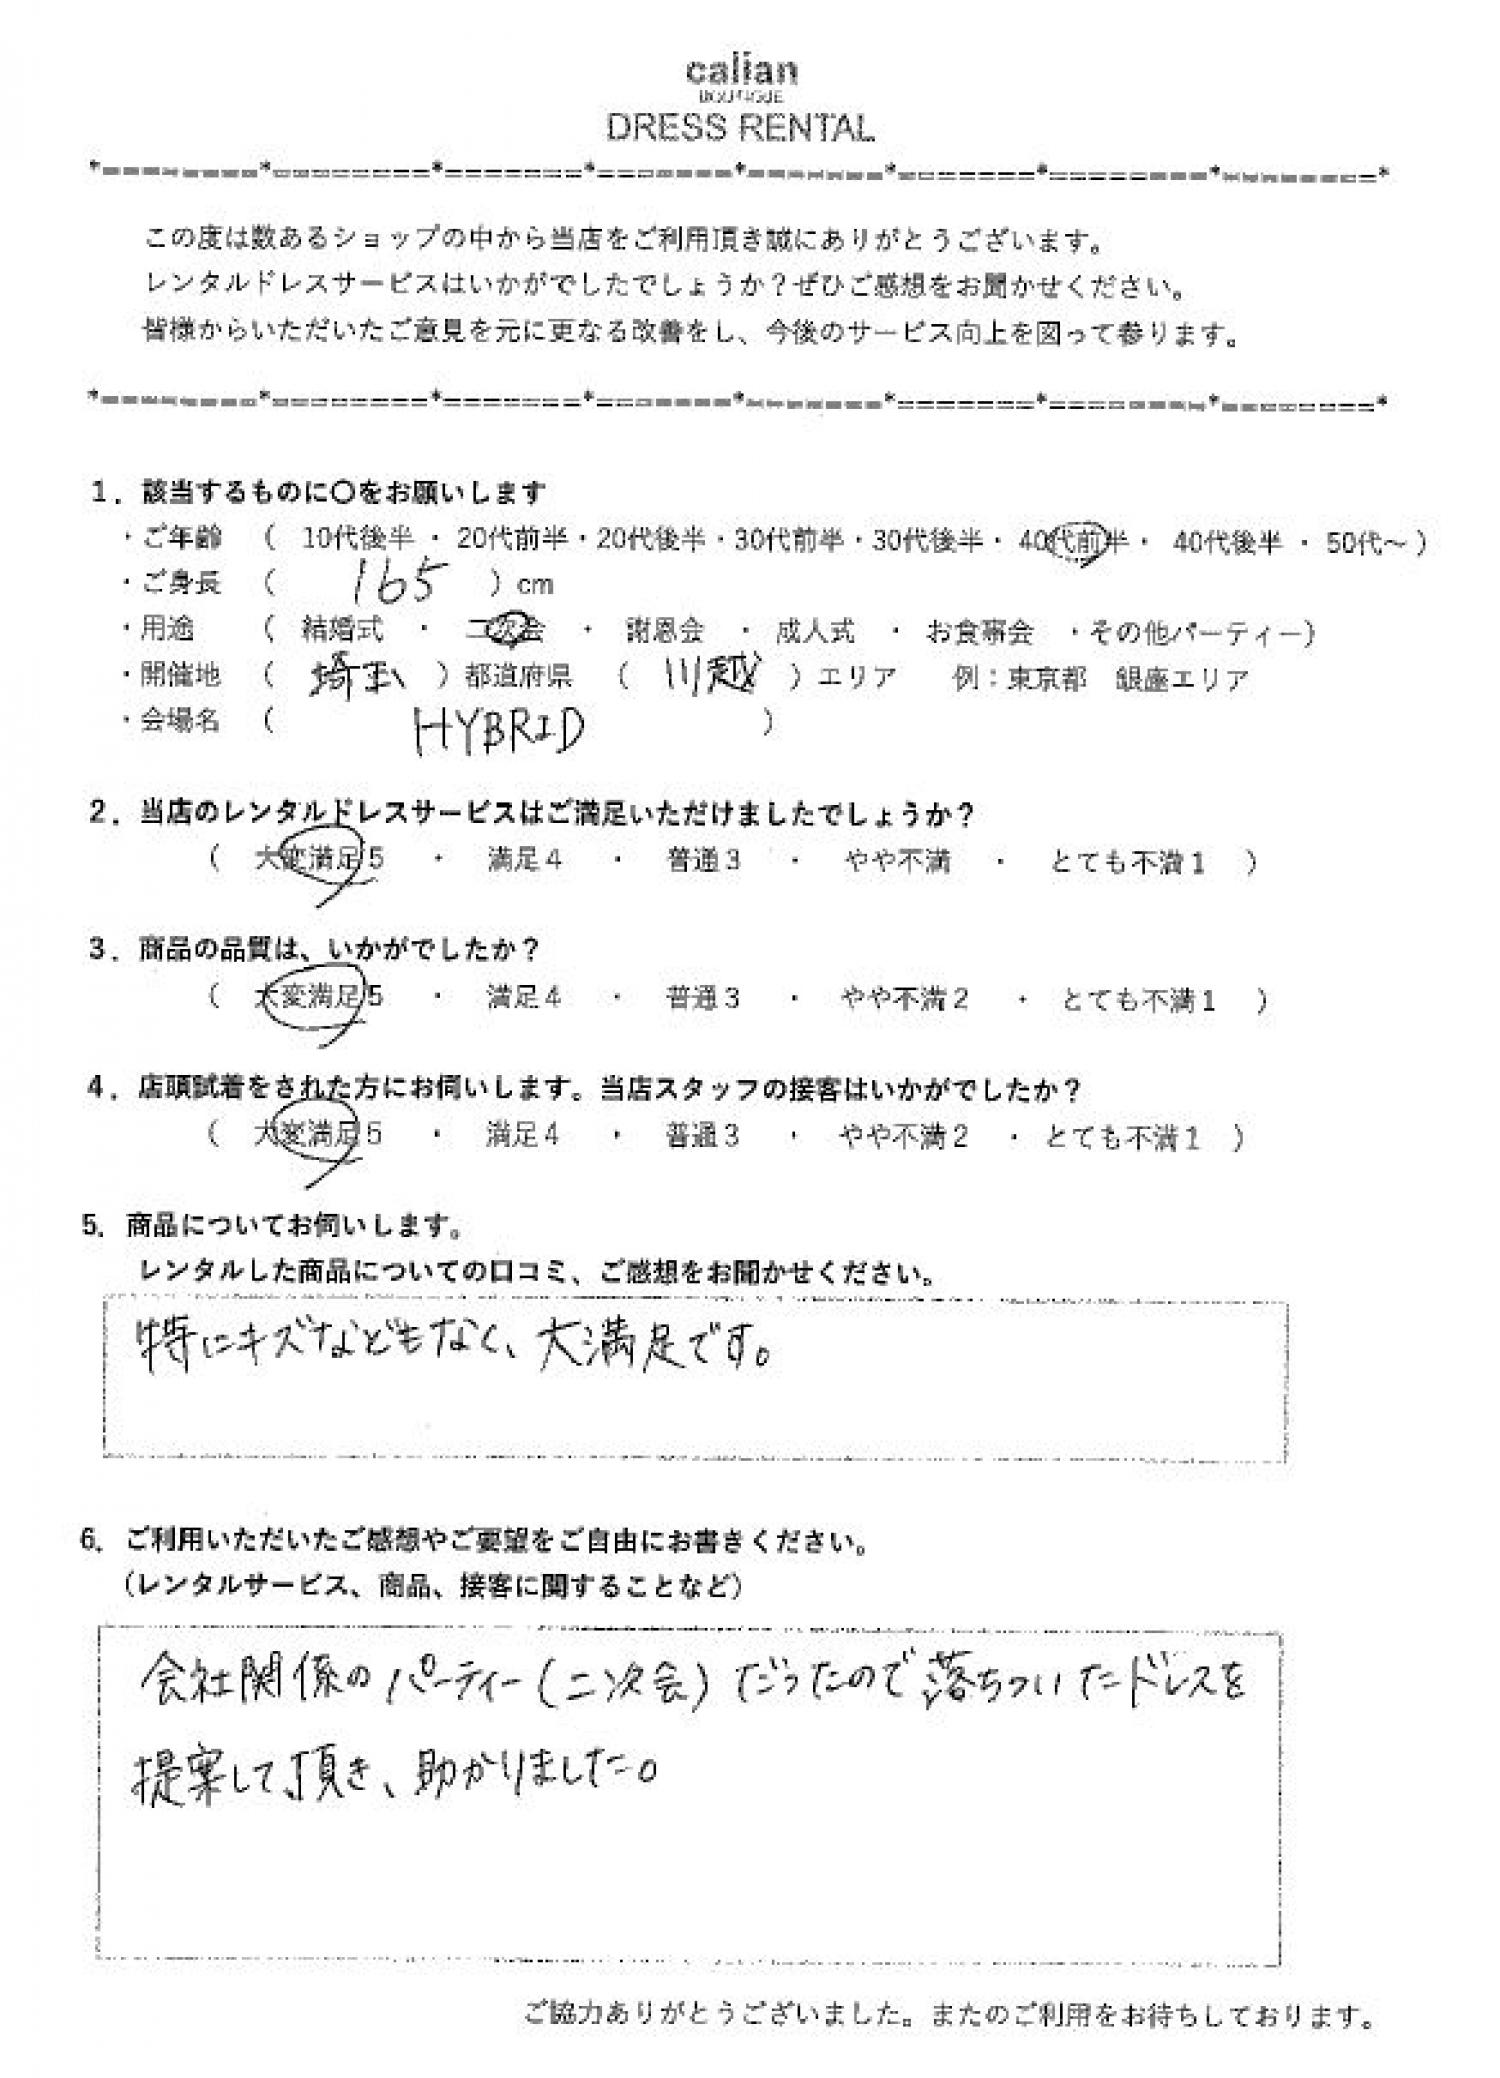 calian
BOUTIQUE
DRESS RENTAL
*========*========*=======*=======*=======*=======*========*========*
この度は数あるショップの中から当店をご利用頂き誠にありがとうございます。
レンタルドレスサービスはいかがでしたでしょうか？ぜひご感想をお聞かせください。
皆様からいただいたご意見を元に更なる改善をし、今後のサービス向上を図って参ります。
*========*========*=======*=======*=======*=======*========*========*
1．該当するものに〇をお願いします
・ご年齢 （ 10代後半 ・ 20代前半・20代後半・30代前半・30代後半・ 40代前半・ 40代後半 ・ 50代～ ）
・ご身長 （ 165 ）cm
・用途 （ 結婚式 ・ 二次会 ・ 謝恩会 ・ 成人式 ・ お食事会 ・その他パーティー）
・開催地 （ 埼玉 ）都道府県 （ 川越 ）エリア 例：東京都 銀座エリア
・会場名 （ HYBRID ）
2．当店のレンタルドレスサービスはご満足いただけましたでしょうか？
（ 大変満足5 ・ 満足4 ・ 普通3 ・ やや不満 ・ とても不満1 ）
3．商品の品質は、いかがでしたか？
（ 大変満足5 ・ 満足4 ・ 普通3 ・ やや不満2 ・ とても不満1 ）
4．店頭試着をされた方にお伺いします。当店スタッフの接客はいかがでしたか？
（ 大変満足5 ・ 満足4 ・ 普通3 ・ やや不満2 ・ とても不満1 ）
5．商品についてお伺いします。
レンタルした商品についての口コミ、ご感想をお聞かせください。
特にキズなどもなく、大満足です。
6．ご利用いただいたご感想やご要望をご自由にお書きください。
（レンタルサービス、商品、接客に関することなど）
会社関係のパーティー（二次会）だったので落ちついたドレスを
提案して頂き、助かりました。
ご協力ありがとうございました。またのご利用をお待ちしております。